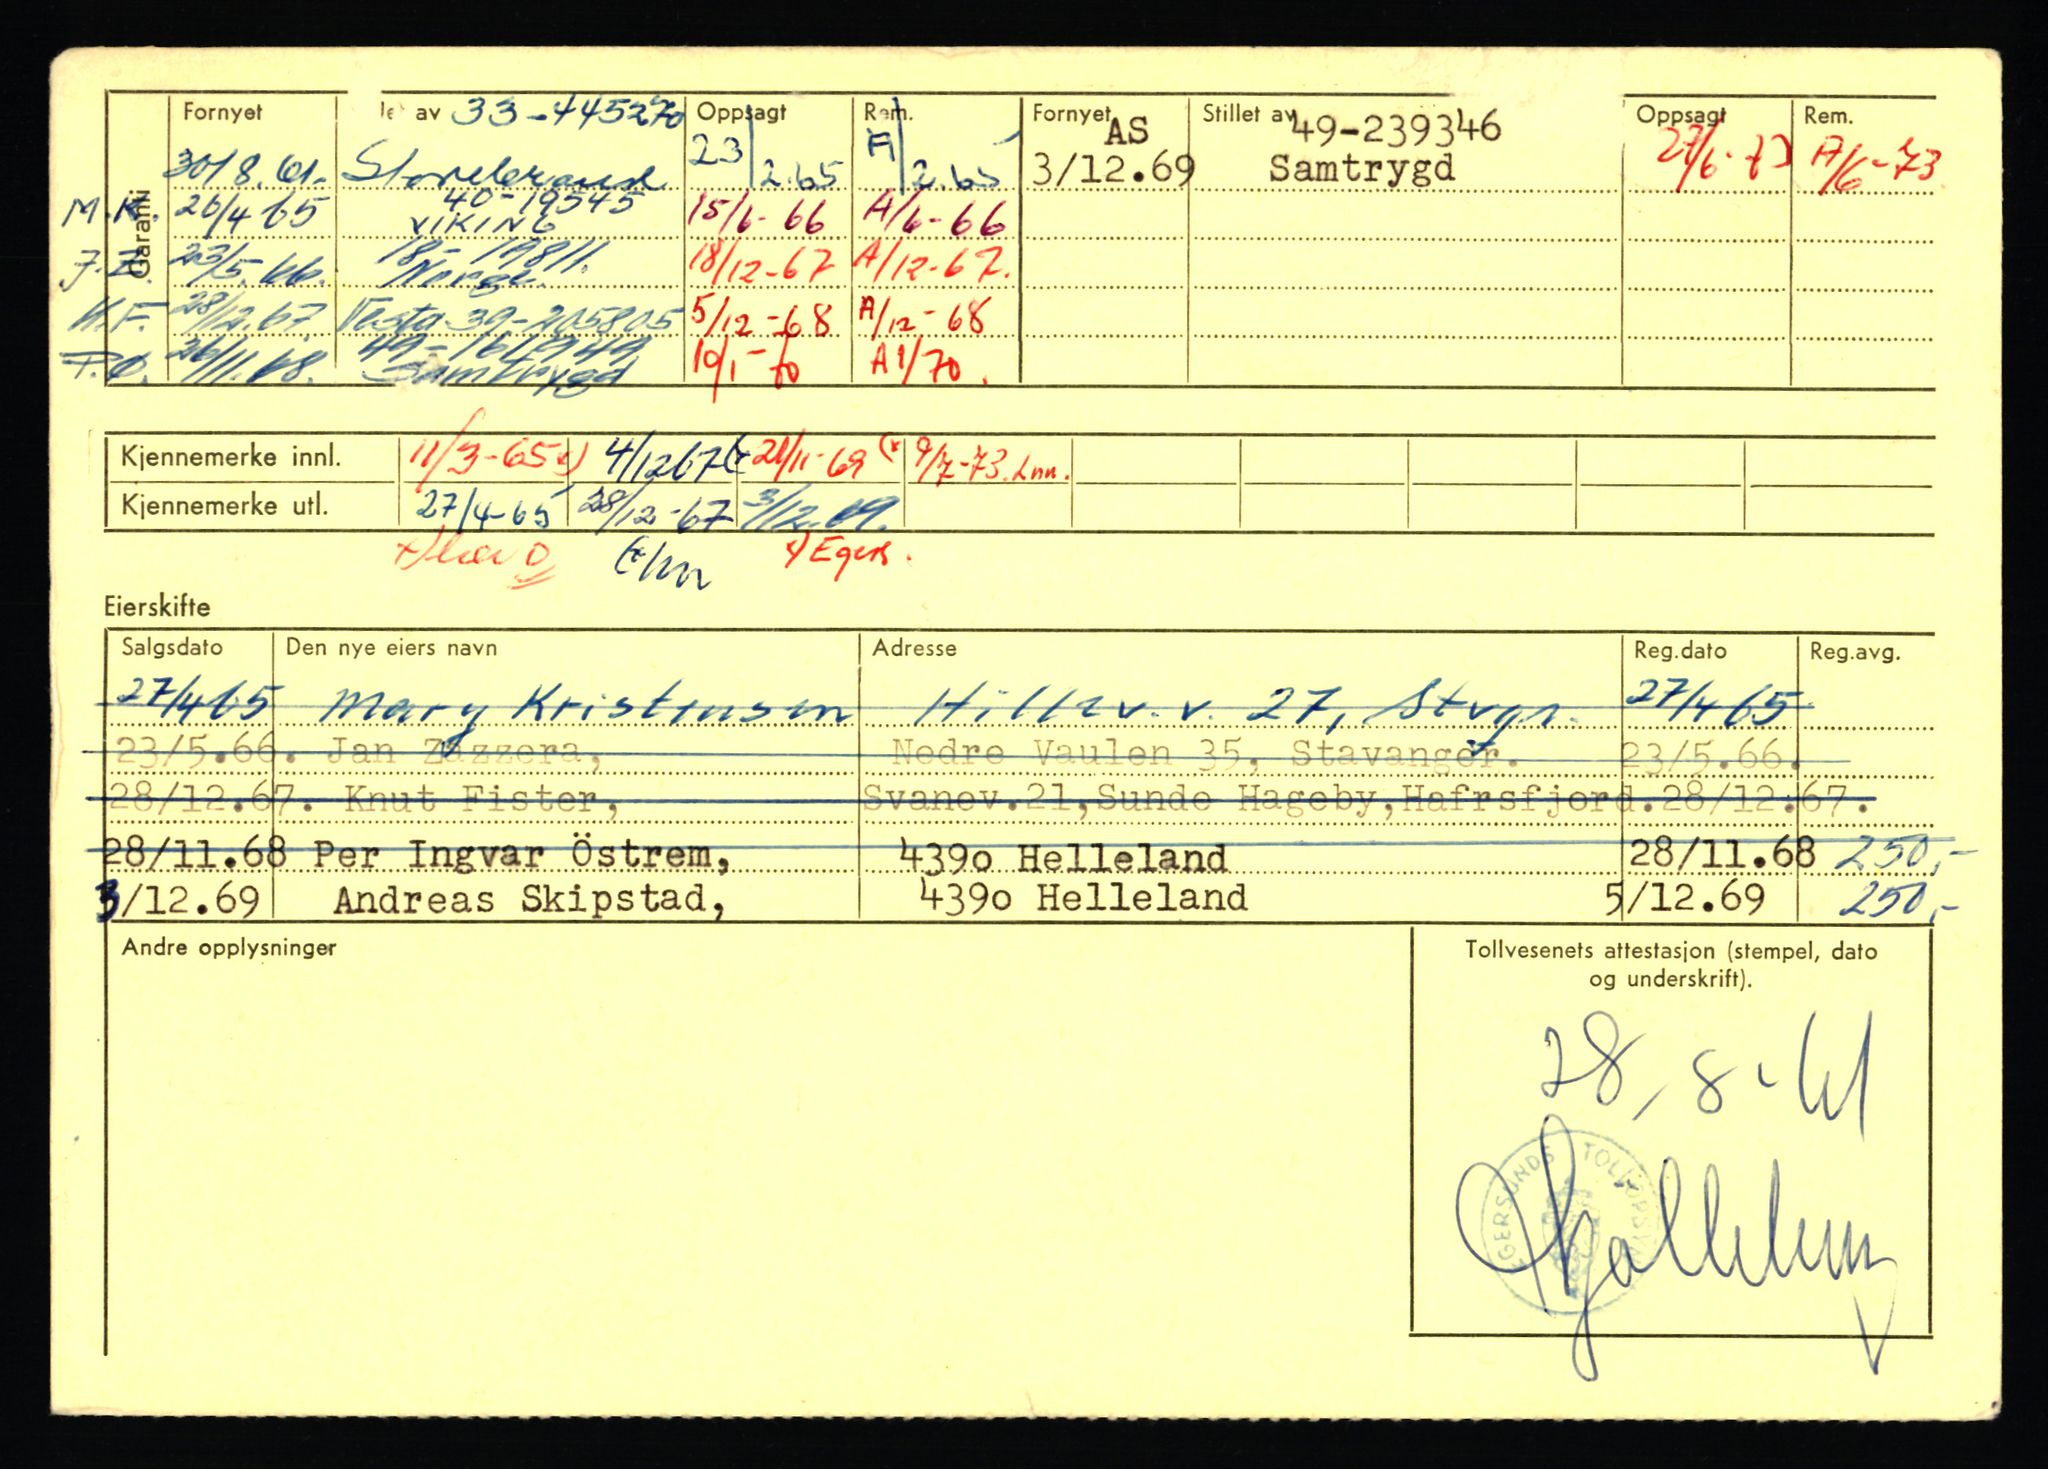 Fornyet av 33-445270 Oppsagt Rem. Fornyet Stillet av Oppsagt Rem.
Garanti
30/8.61. Storebrand 23/2.65 A/2.65 AS 3/12.69 49-239346 Samtrygd 27/6-73 A/6-73
M.K. 26/4 65 40-19545 VIKING 15/6-66 A/6-66
J.Z. 23/5.66. 18-19811. Norge. 18/12-67 A/12-67.
K.F. 28/12.67 Vesta 39-205805 5/12-68 A/12-68
P.Ø. 26/11.68. Samtrygd 19/1-70 A 1/70.
Kjennemerke innl. 11/3-65 x) 4/12 67 (x 21/11-69 (x 9/7-73. Inn.
Kjennemerke utl. 27/4-65 28/12-67 3/12.69.
x) (x/Inn x) Egers.
Eierskifte
Salgsdato Den nye eiers navn Adresse Reg.dato Reg.avg.
27/4 65 Mary Kristensen Hillev.v. 27, Stvgr. 27/4 65
23/5.66. Jan Zazzera, Nedre Vaulen 35, Stavanger. 23/5.66.
28/12.67. Knut Fister, Svanev.21,Sunde Hageby,Hafrsfjord. 28/12.67.
28/11.68 Per Ingvar Östrem, 439o Helleland 28/11.68 250,-
3/12.69 Andreas Skipstad, 439o Helleland 5/12.69 250,-
Andre opplysninger
Tollvesenets attestasjon (stempel, dato
og underskrift).
28,8-61
EGERSUNDS TOLLOPPSYN